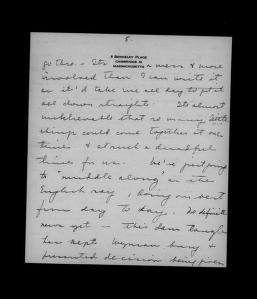 5.
6 BERKELEY PLACE
CAMBRIDGE 38
MASSACHUSETTS
go thro. - Its a mess & more
involved than I can write it
as it'd take me all day to put it
all down straight. Its almost
unbelievable that so many little
things could come together at one
time & at such a dreadful
time for us. We're just going
to "muddle along" as the
English say, living our part
from day to day. No definite
news yet - this dam tangle
has kept Wyman busy &
prevented decision being given